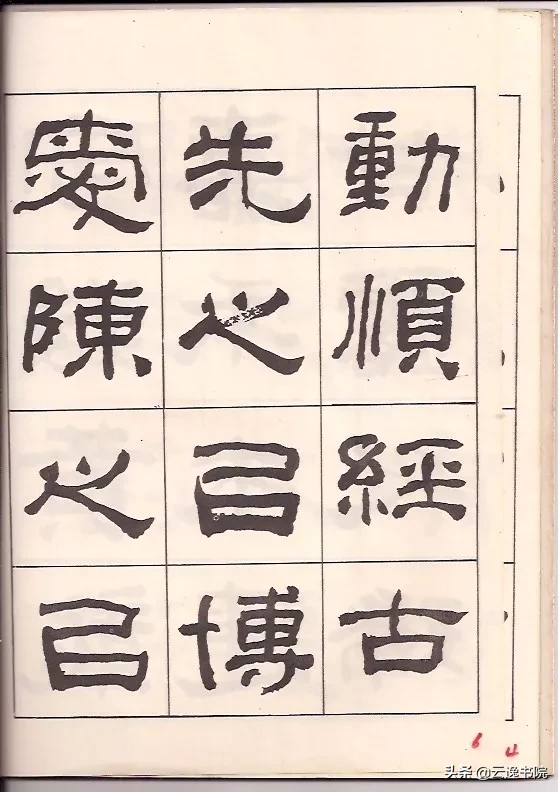 動順經古
先之㠯博
愛陳之㠯
6 4
头条 @云逸书院